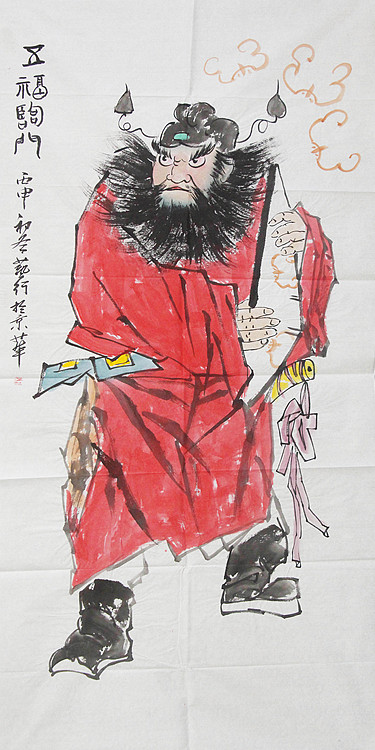 五福臨門
丙申初冬藝行於京華